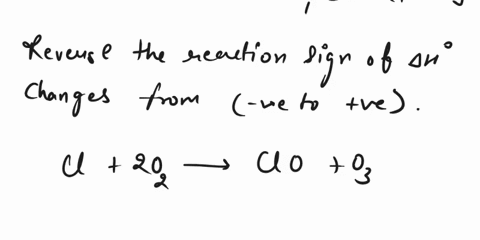 Reverse the reaction sign of ΔH°
Changes from (-ve to +ve).
Cl + 2O₂ ⟶ ClO + O₃